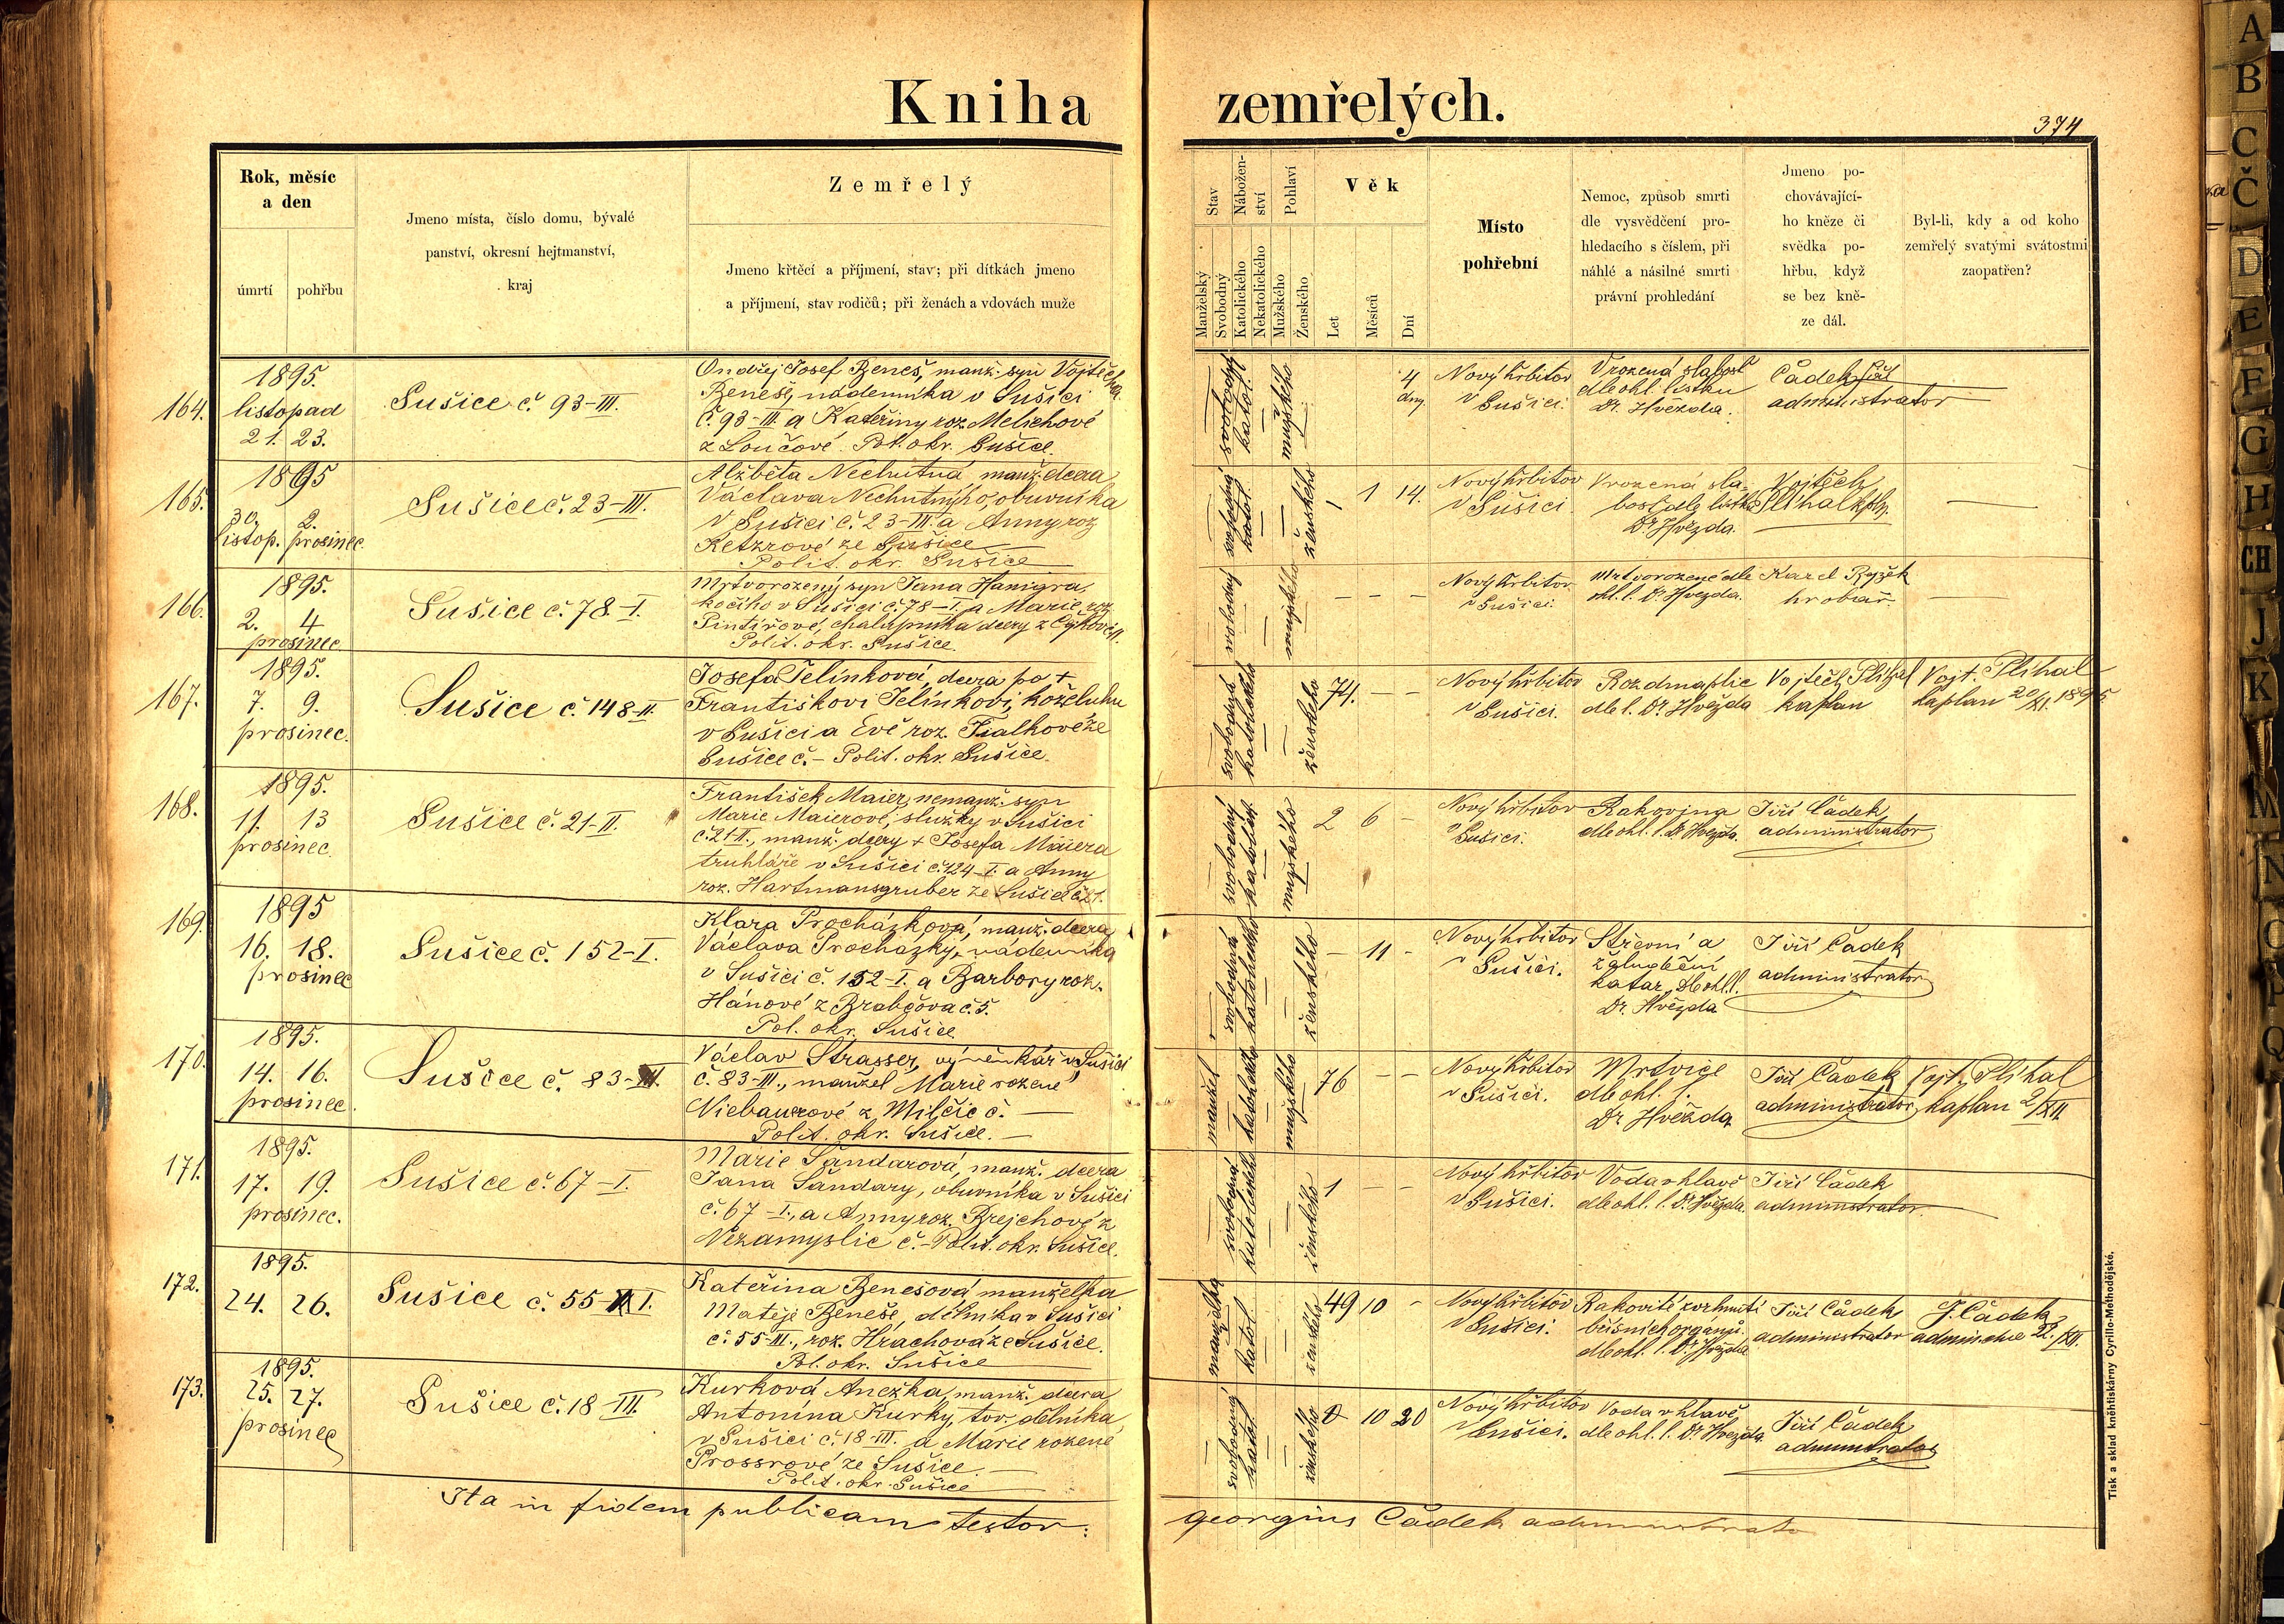 Kniha zemřelých.
374
Rok, měsíc
a den
úmrtí
pohřbu
Jmeno místa, číslo domu, bývalé
panství, okresní hejtmanství,
kraj
Zemřelý
Jmeno křtěcí a příjmení, stav; při dítkách jmeno
a příjmení, stav rodičů; při ženách a vdovách muže
Stav
Nábožen-
ství
Pohlaví
Manželský
Svobodný
Katolického
Nekatolického
Mužského
Ženského
Věk
Let
Měsíců
Dní
Místo
pohřební
Nemoc, způsob smrti
dle vysvědčení pro-
hledacího s číslem, při
náhlé a násilné smrti
právní prohledání
Jmeno po-
chovávající-
ho kněze či
svědka po-
hřbu, když
se bez kně-
ze dál.
Byl-li, kdy a od koho
zemřelý svatými svátostmi
zaopatřen?
164.
1895.
listopad
21. 23.
Sušice č. 93-III.
Ondřej Josef Beneš, manž. syn Vojtěcha
Beneše, nádenníka v Sušici
č. 93-III. a Kateřiny roz. Melichové
z Loučové. Pol. okr. Sušice.
svobodný
katol.
mužského
4
dny
Nový hřbitov
v Sušici.
Vrozená slabost
dle ohl. lístku
Dr. Hvězda.
Čádek
administrator
165.
1895
30. 2.
listop. prosinec.
Sušice č. 23-III.
Alžběta Nechutná manž. dcera
Václava Nechutného, obuvníka
v Sušici č. 23-III. a Anny roz
Ketzrové ze Sušice
Polit. okr. Sušice
svobodná
katol.
ženského
1 1 14.
Nový hřbitov
v Sušici.
Vrozená sla-
bost dle lístku
Dr. Hvězda.
Vojtěch
Plíhal kpl.
166.
1895.
2. 4
prosinec.
Sušice č. 78-I.
Mrtvorozený syn Jana Hanigra,
kočího v Sušici č. 78-I. a Marie roz.
Pintířové, chalupníka dcery z
Polit. okr. Sušice.
svobodný
mužského
Nový hřbitov
v Sušici.
Mrtvorozené dle
ohl. l. Dr. Hvězda.
Karel Ryžek
hrobař.
167.
1895.
7. 9.
prosinec.
Sušice č. 148-II.
Josefa Jelínková, dcera po +
Františkovi Jelínkovi, koželuhu
v Sušici a Evě roz. Fialkové ze
Sušice č. - Polit. okr. Sušice.
svobodná
katolického
ženského
74. - -
Nový hřbitov
v Sušici.
Rozedma plic
dle l. Dr. Hvězda
Vojtěch Plíhal
kaplan
Vojt. Plíhal
kaplan 20/XI. 1895
168.
1895.
11. 13
prosinec.
Sušice č. 21-II.
František Maier, nemanž. syn
Marie Maierové, služky v Sušici
č. 21-II., manž. dcery + Josefa Maiera
truhláře v Sušici č. 124-I. a Anny
roz. Hartmansgruber ze Sušice č. 21.
svobodný
katolick.
mužského
2 6 -
Nový hřbitov
v Sušici.
Rakovina
dle ohl. l. Dr. Hvězda.
Jiří Čádek,
administrator
169.
1895
16. 18.
prosinec
Sušice č. 152-I.
Klara Procházková, manž. dcera
Václava Procházky, nádenníka
v Sušici č. 152-I. a Barbory roz.
Hánové z Brabčova č. 5.
Pol. okr. Sušice
svobodná
katolického
ženského
- 11 -
Nový hřbitov
v Sušici.
Střevní a
žaludeční
katar, dle ohl. l.
Dr. Hvězda
Jiří Čádek
administrator
170.
1895.
14. 16.
prosinec.
Sušice č. 83-III.
Václav Strasser, výměnkář v Sušici
č. 83-III., manžel Marie rozené
Niebauerové z Milčic č. -
Polit. okr. Sušice. -
manžel
katolického
mužského
76 - -
Nový hřbitov
v Sušici.
Mrtvice
dle ohl. l.
Dr Hvězda
Jiří Čádek
administrator
Vojt. Plíhal
kaplan 2/XII.
171.
1895.
17. 19.
prosinec.
Sušice č. 67-I.
Marie Šandarová, manž. dcera
Jana Šandary, obuvníka v Sušici
č. 67-I., a Anny roz. Brejchové z
Nezamyslic č. - Polit. okr. Sušice.
svobodná
katolického
ženského
1 - -
Nový hřbitov
v Sušici.
Voda v hlavě
dle ohl. l. Dr. Hvězda.
Jiří Čádek
administrator.
172.
1895.
24. 26.
Sušice č. 55-III.
Kateřina Benešová manželka
Matěje Beneše, dělníka v Sušici
č. 55-III., roz. Hrachová ze Sušice.
Pol. okr. Sušice
manželka
katol.
ženského
49 10 -
Nový hřbitov
v Sušici.
Rakovité zvrhnutí
břišních orgánů.
dle ohl. l. Dr. Hvězda
Jiří Čádek
administrator
J. Čádek
admin. dne 22./XII.
173.
1895.
25. 27.
prosinec
Sušice č. 18-III.
Kurková Anežka, manž. dcera
Antonína Kurky, tov. dělníka
v Sušici č. 18-III. a Marie rozené
Prossrové ze Sušice. -
Polit. okr. Sušice
svobodná
katol.
ženského
0 10 20
Nový hřbitov
v Sušici.
Voda v hlavě,
dle ohl. l. Dr Hvězda.
Jiří Čádek
administrator
Ita in fidem publicam testor:
georgius Čádek administrator
Tisk a sklad kněhtiskárny Cyrillo-Methodějské.
A
B
C
Č
D
E
F
G
H
CH
J
K
M
N
O
P
Q